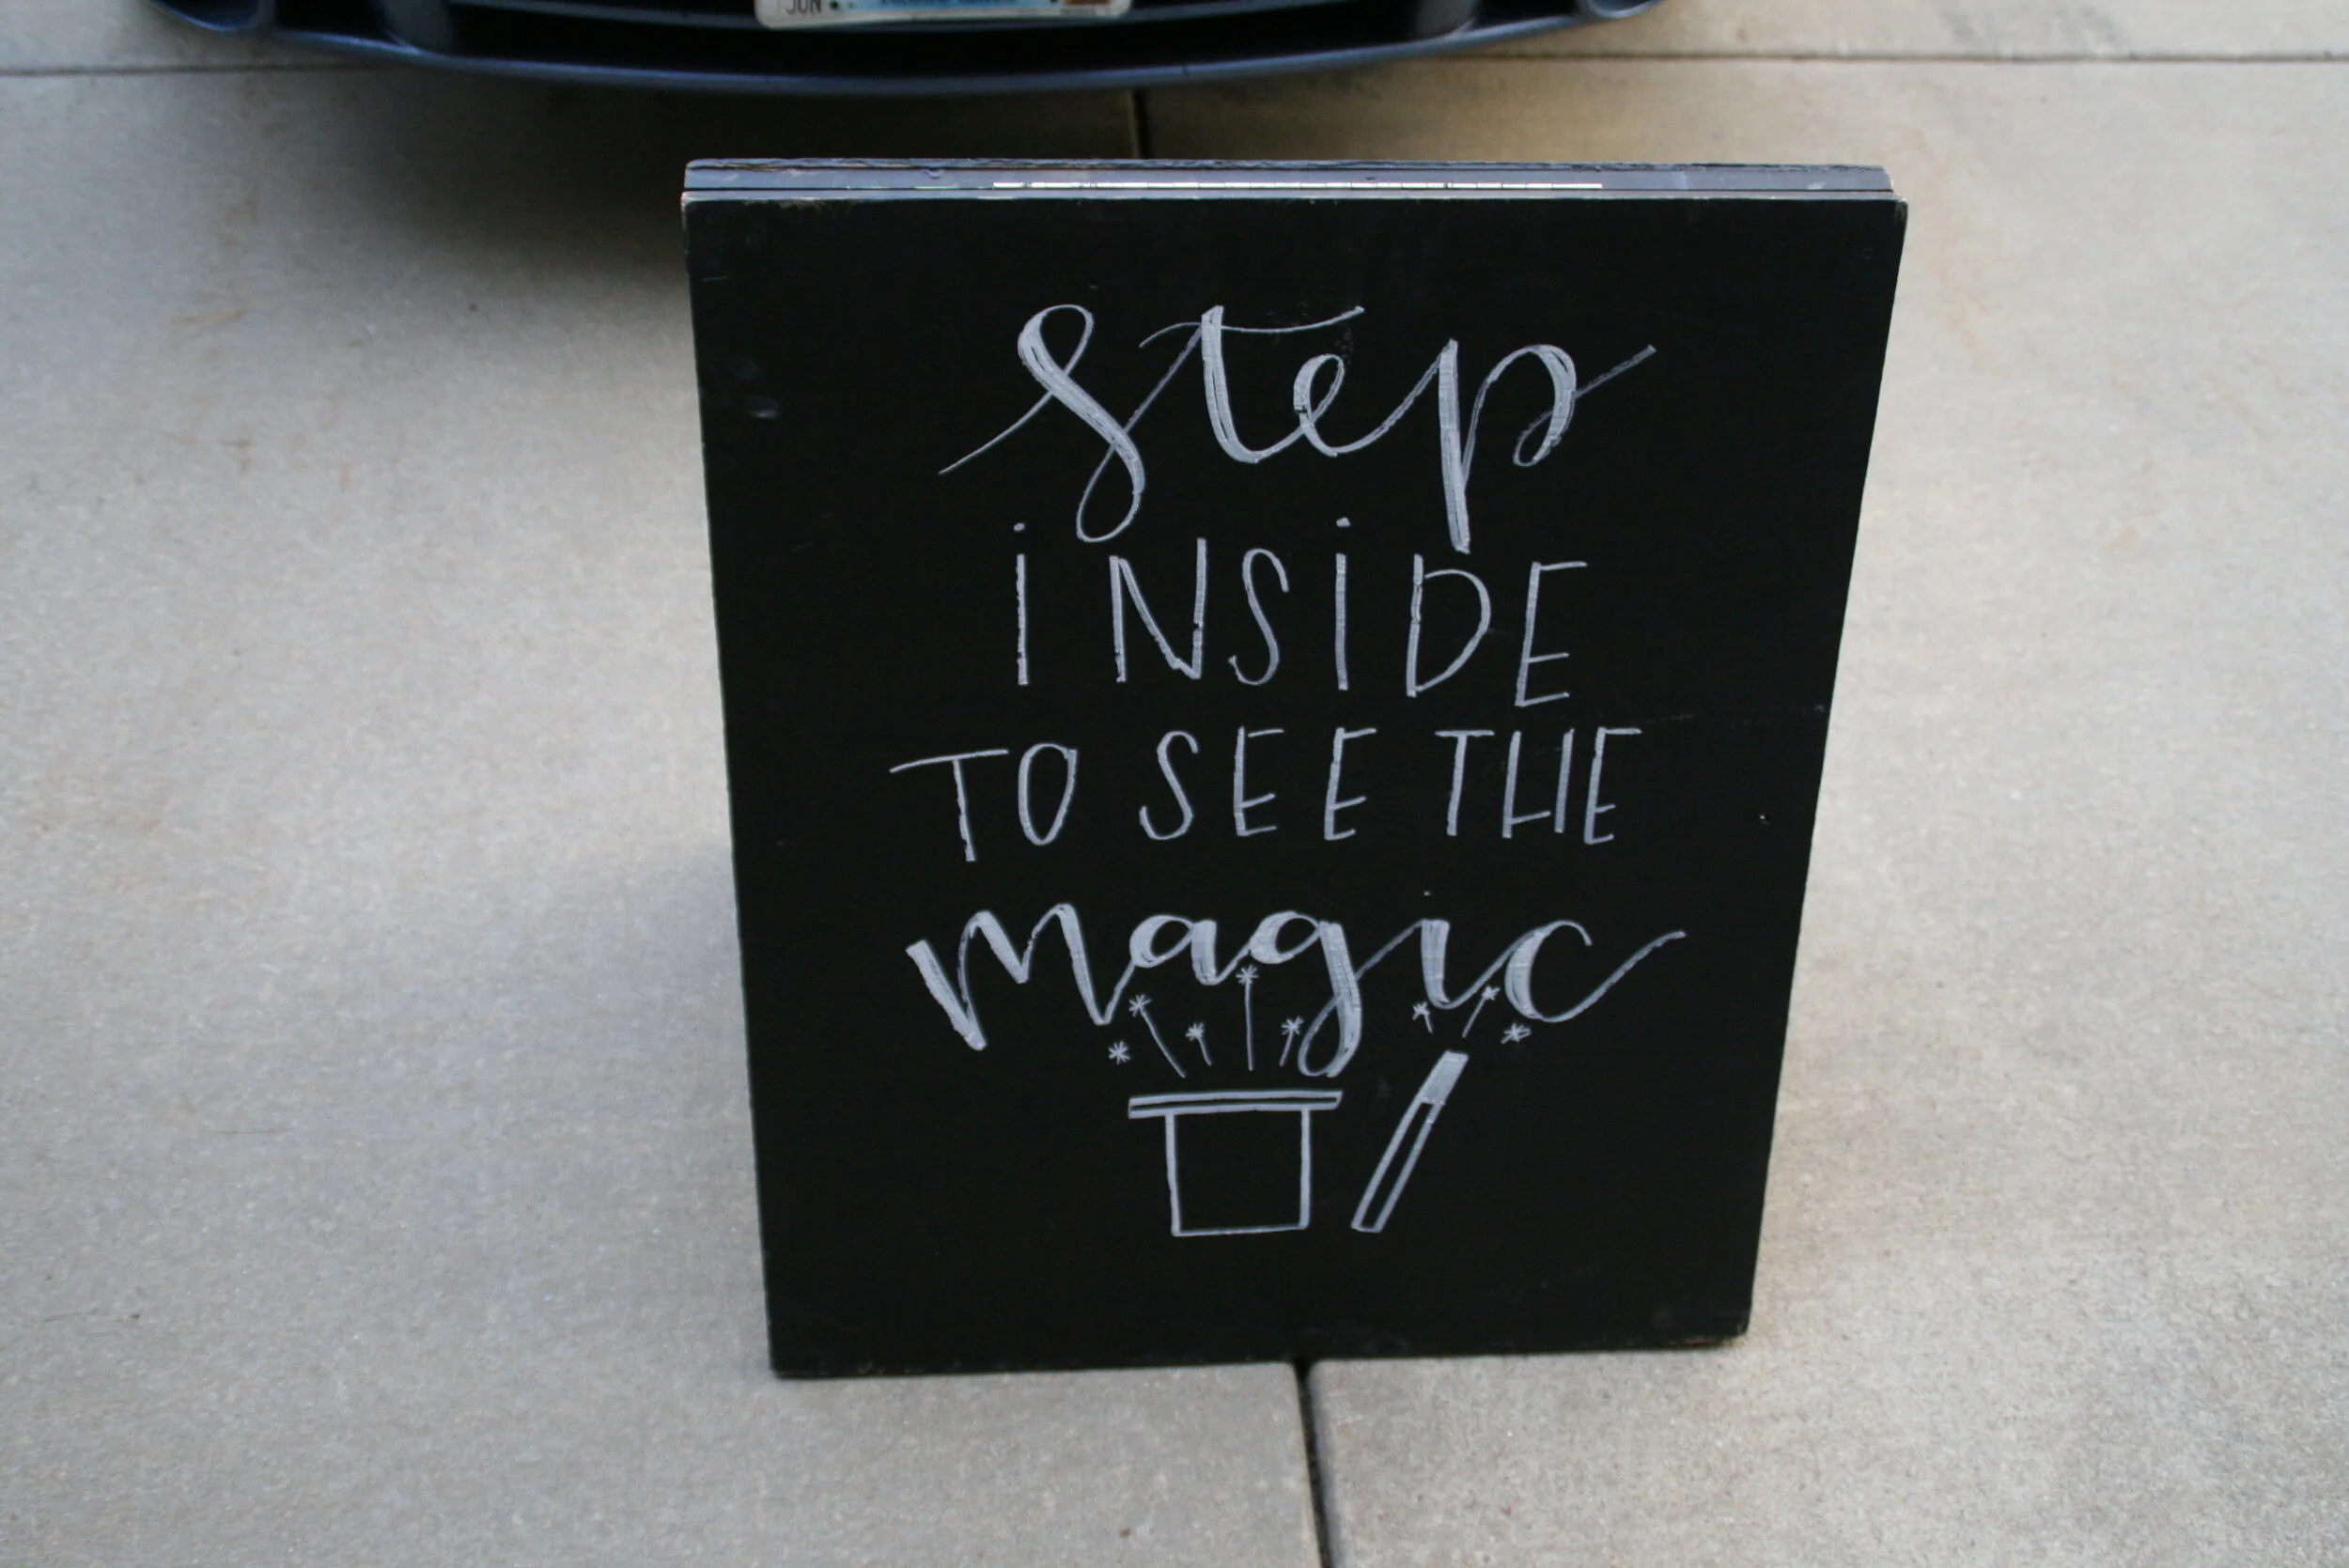 JUN
step
iNSiDE
TO SEE THE
magic